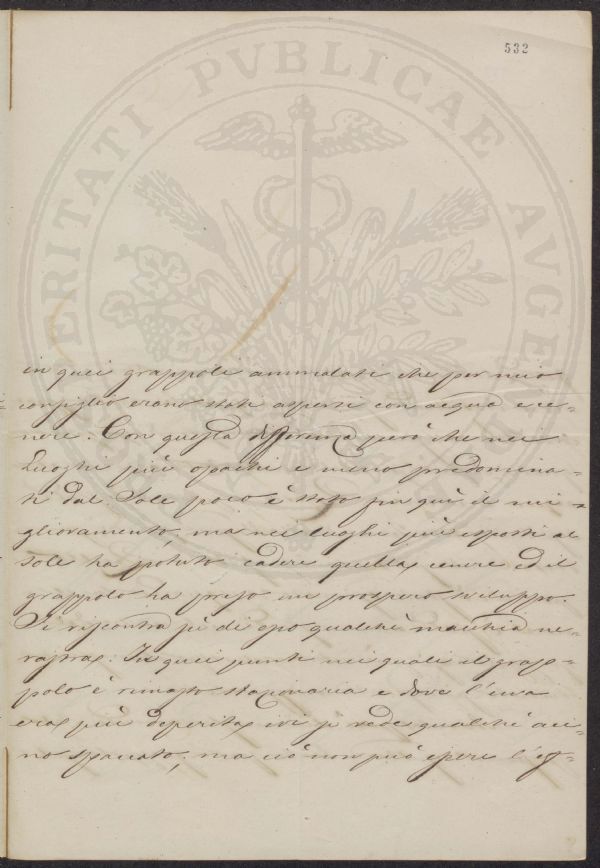 532
PROSPERITATI PVBLICAE AVGENDAE
in quei grappoli ammalati che per mio
consiglio erano stati aspersi con acqua e ce-
nere. Con questa differenza però che nei
Luoghi più opachi e meno predomina-
ti dal Sole poco è stato fin quì il mi-
glioramento, ma nei luoghi più esposti al
sole ha potuto cadere quella cenere ed il
grappolo ha preso un prospero sviluppo.
Si riscontra sì di esso qualche macchia ne-
rastra. In quei punti nei quali il grap-
polo è rimasto stazionario e dove l'uva
era più deperita ivi si vede qualche aci-
no spaccato, ma ciò non può essere l'ef-